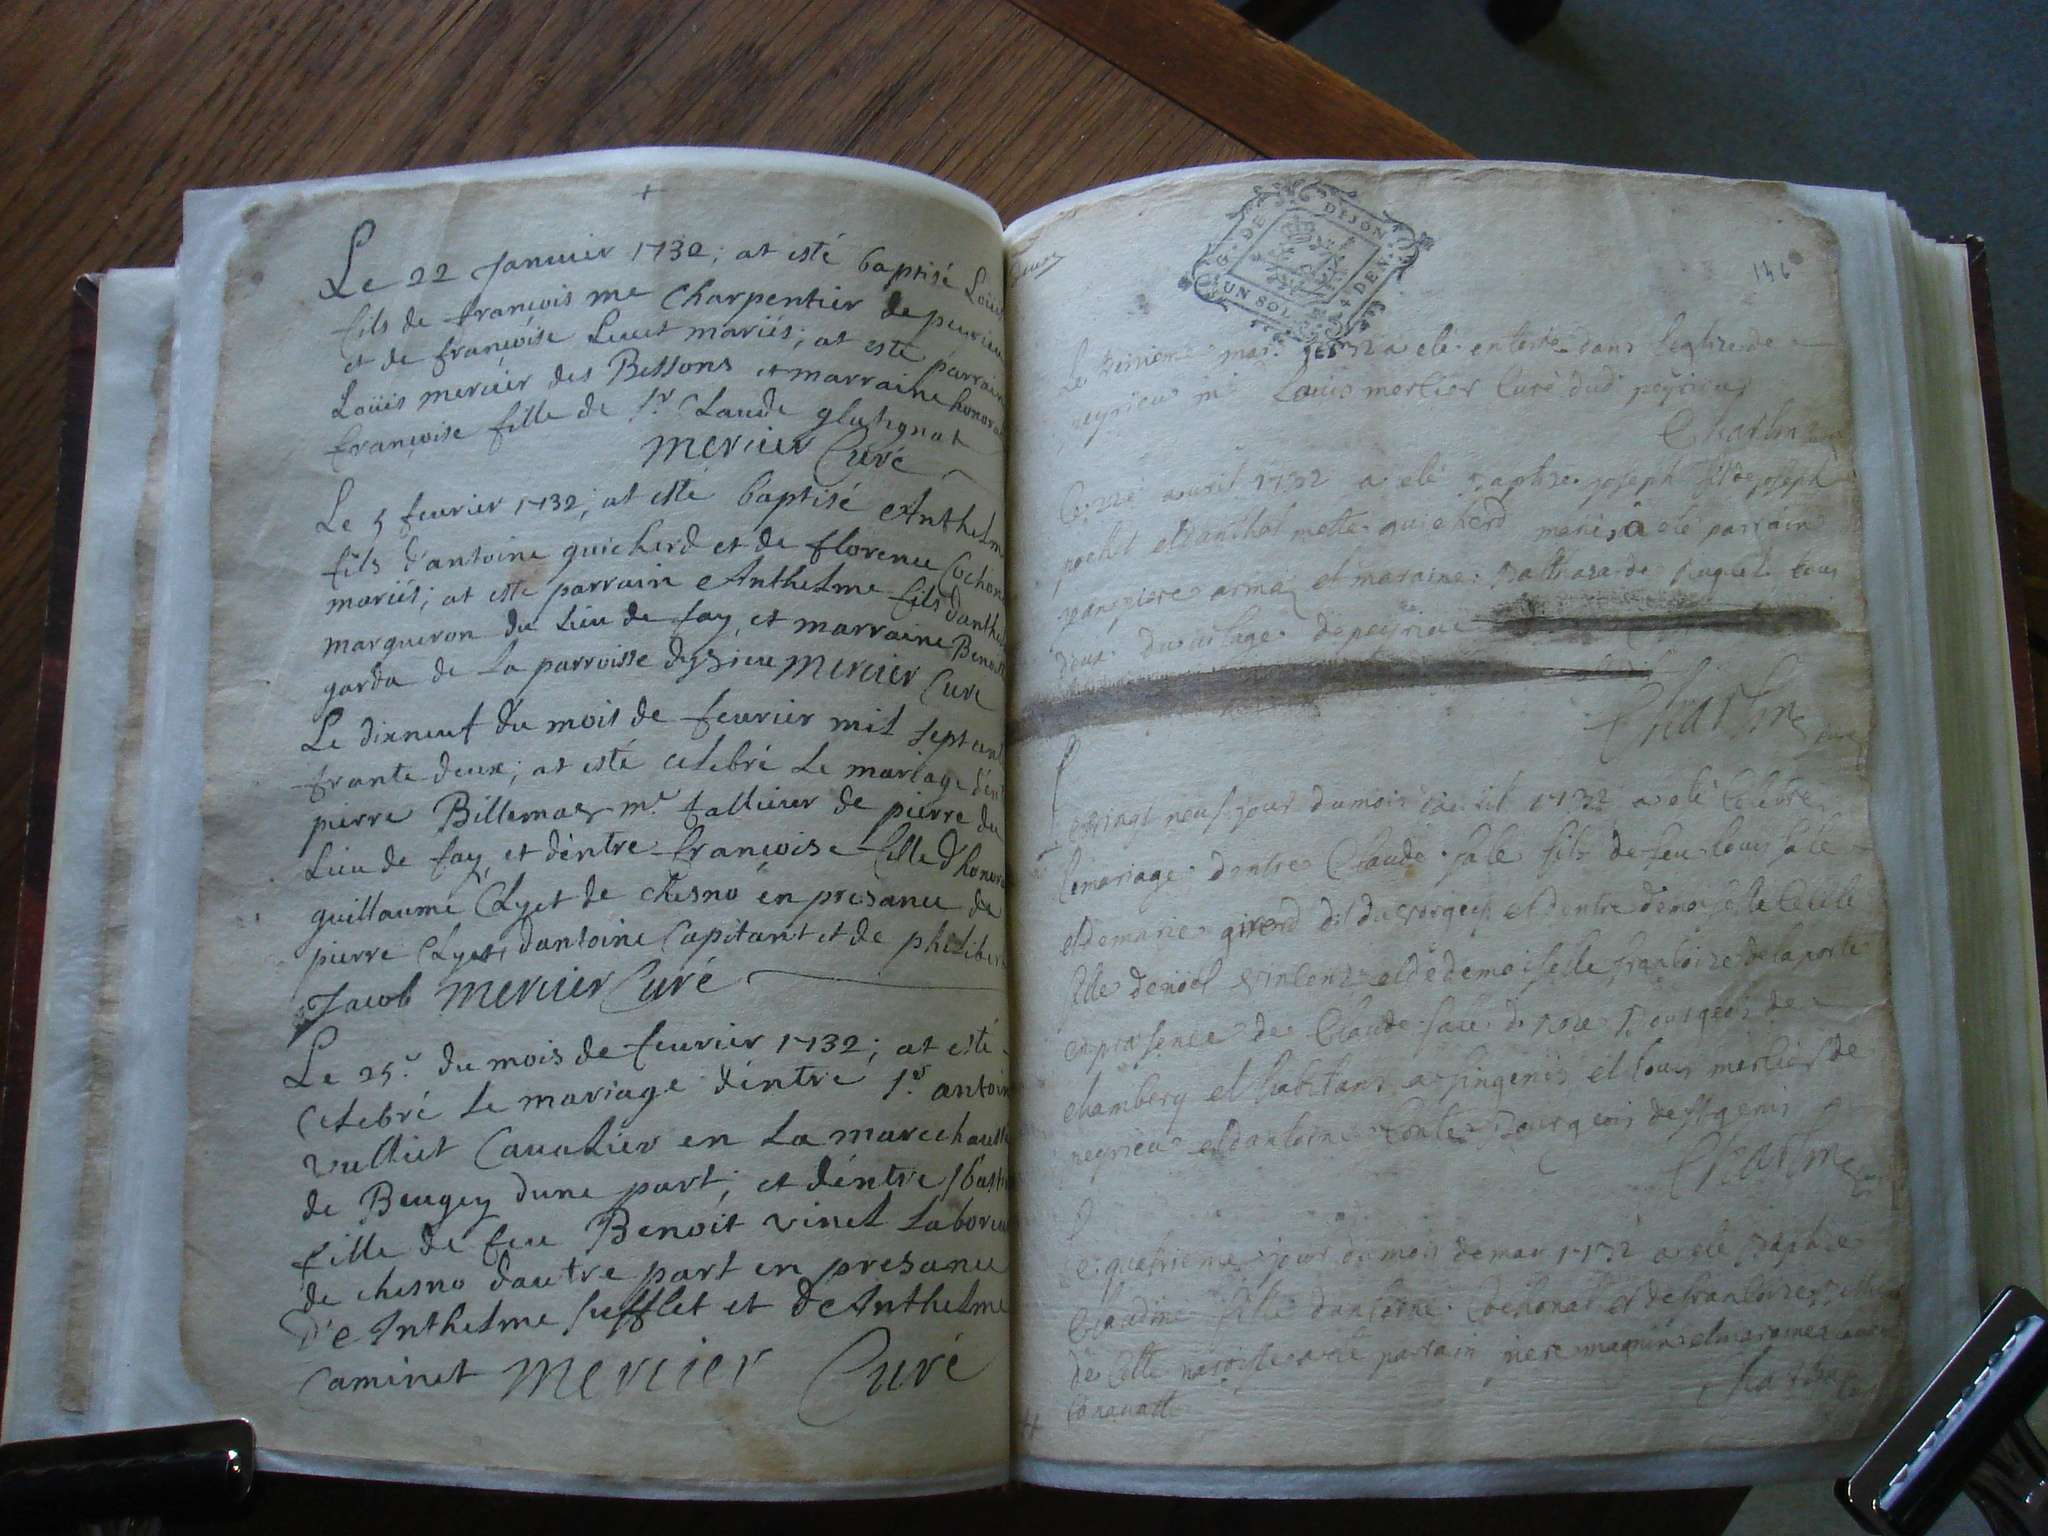 Le 22 Januier 1732; at esté baptisé Loüis
fils de françois me Charpentier de peurieu
et de françoise Lucet mariés; at esté parrain
Loüis mercier des Bessons et marraine honora
françoise fille de sr. Claude glatignat
mercier Curé
Le 5 feurier 1732; at esté baptisé Anthelm
fils d'antoine guicherd et de florence Cochon
mariés; at esté parrain Anthelme fils d'anthel
margueron du Lieu de fay, et marraine Benoit
garda de La parroisse dysieu mercier Curé
Le dixneuf du mois de feurier mil sept cent
trante deux; at esté celebré Le mariage d'en
pierre Billemaz me tallieur de pierre du
Lieu de fay, et d'entre françoise fille d'honora
guillaume Clyet de Chesno en presance de
pierre Clyet, dantoine Capitant et de philibert
Jacob mercier Curé
Le 25e du mois de feurier 1732; at esté
Celebré Le mariage d'entre sr. antoin
vulliet Caualier en La marechaussé
de Beugey dune part, et d'entre sbasti
fille de feu Benoit vinel Laboreu
de chesno dautre part en presance
D'Anthelme sufflet et de Anthelme
Caminet mercier Curé
G. DE DIJON
UN SOL 4 DEN.
136
Le treisieme mar. 1732 a eté enterré dans leglise de
peyrieu mr Louis mertier Curé dud peyrieu
Charlin
avril 1732 a eté baptize joseph fils de joseph
pochet et danthelmette guicherd mariés a eté parrain
jean piere armaz et maraine baltazarde paquet tous
deux du vilage de peyrieu
Charlin
Le vingt neuf jour du mois davril 1732 a eté celebré
le mariage dentre Claude salé fils de feu louis salé
et de marie girerd dit du et dentre demoiselle
fille de noël vincenz et de demoiselle francoize delaporte
en presence de Claude bourgeois de
chambery et habitant a singenis et louis mertier de
peyrieu et dantoine bourgeois de st genis
Charlin
Le quatrieme jour du mois de may 1732 a eté baptize
Claudine fille dantoine Cochonat et de francoize
de cette paroisse a eté parrain piere maquin et maraine
Charlin